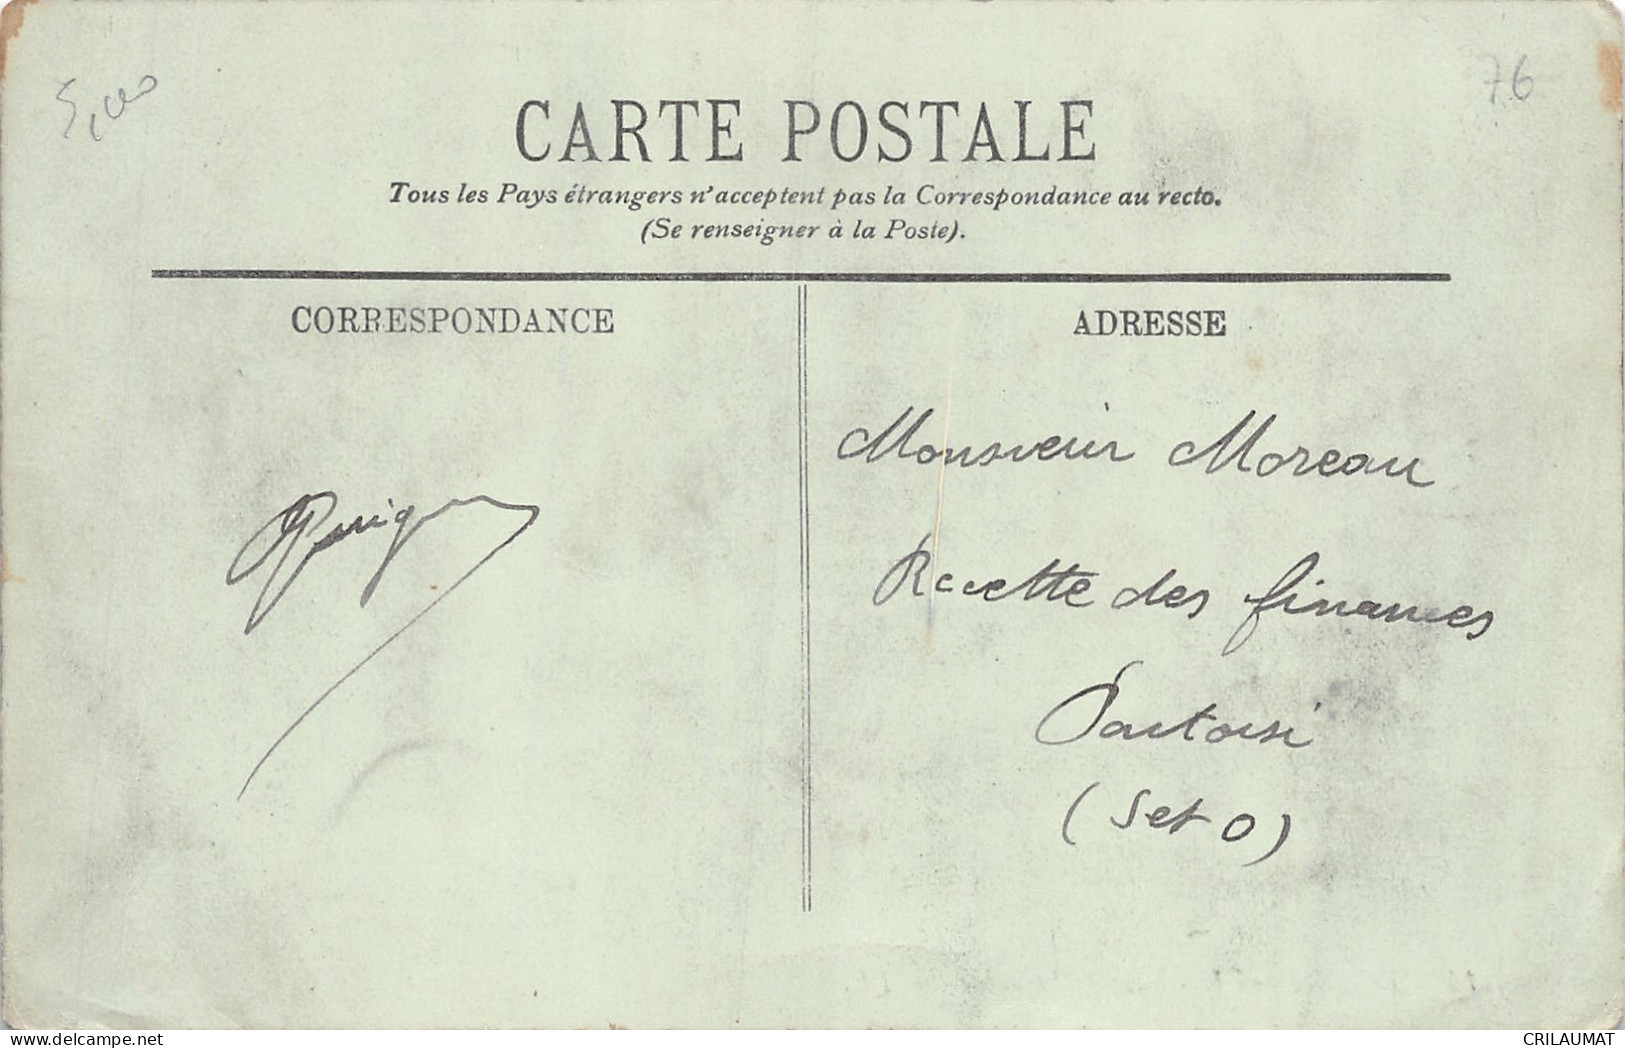 5,00
76
CARTE POSTALE
Tous les Pays étrangers n'acceptent pas la Correspondance au recto.
(Se renseigner à la Poste).
CORRESPONDANCE
ADRESSE
Monsieur Moreau
Recette des finances
Pontoise
(S et O)
delcampe.net
CRILAUMAT